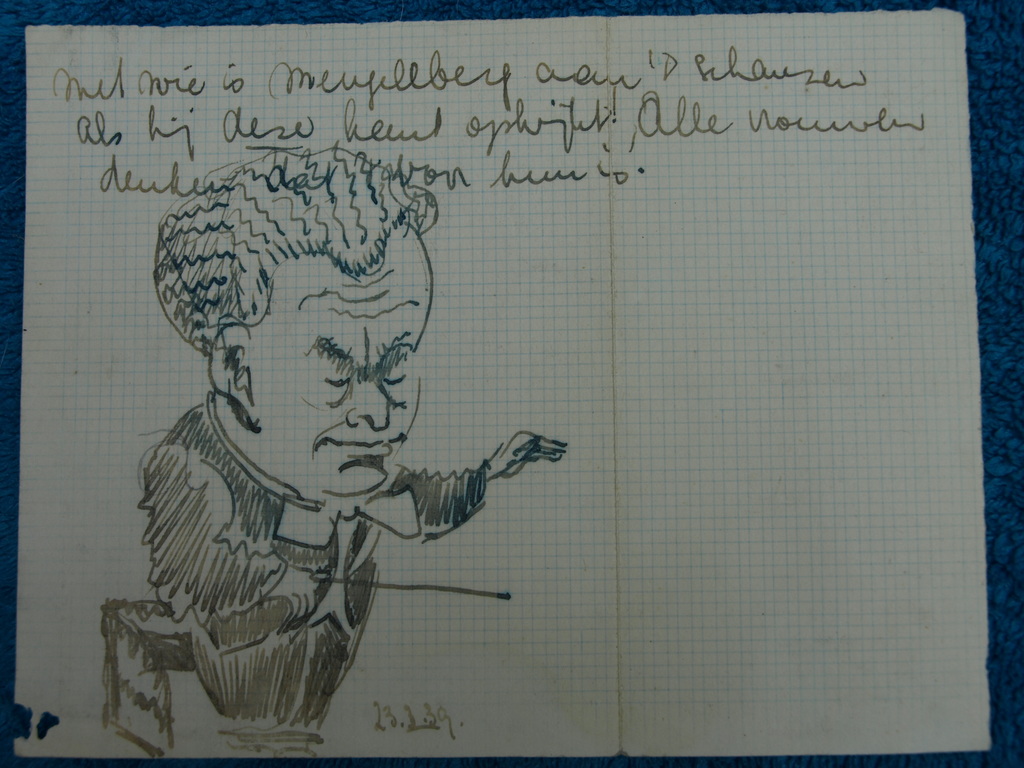 Met wie is Mengellberg aan 'D schansen
als hij deze kant opkijkt! Alle vrouwen
denken dat voor hun is.
23.2.39.